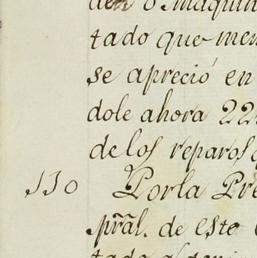 den o Maquin
tado que men
se apreció en
dole ahora 22
de los reparos
130 Por la Pre
pral. de este
tado